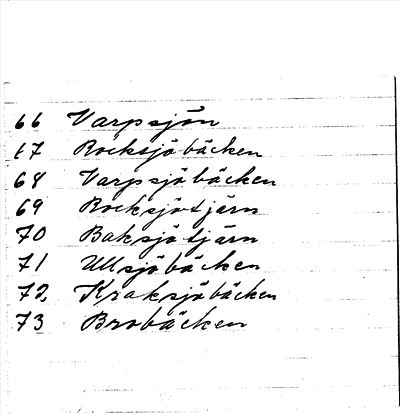 66 Varpsjön
67 Rocksjöbäcken
68 Varpsjöbäcken
69 Rocksjötjärn
70 Baksjötjärn
71 Ullsjöbäcken
72 Kraksjöbäcken
73 Brobäcken